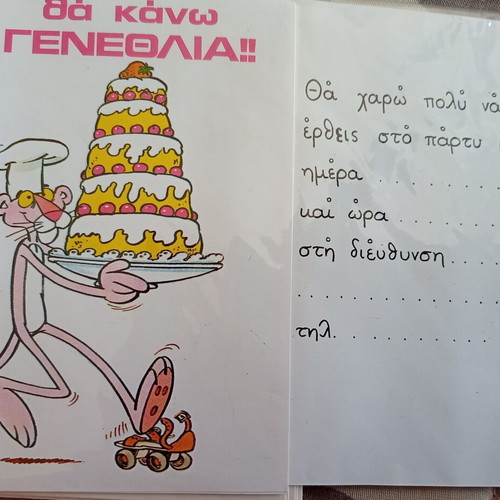 θά κάνω
ΓΕΝΕΘΛΙΑ!!
Θά χαρῶ πολύ νά
ἐρθεις στό πάρτυ
ημέρα . . . . . . . . . .
καί ὥρα . . . . . . . . .
στή διεύθυνση . . . .
. . . . . . . . . . . . . . . .
τηλ. . . . . . . . . . . . .